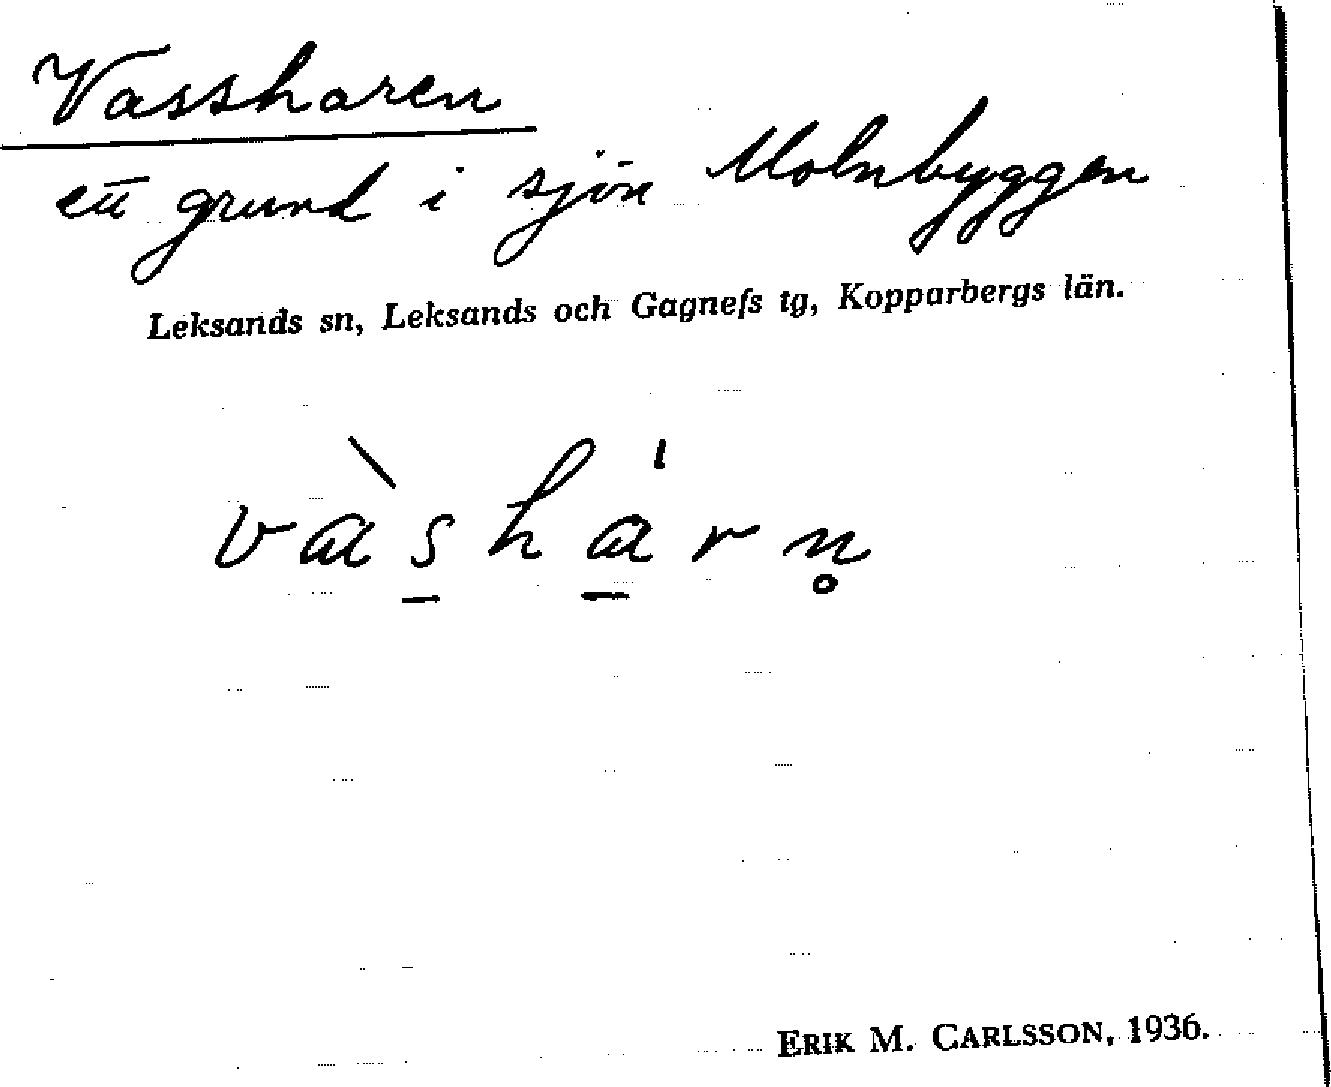 Vassharen
ett grund i sjön Molnbyggen
Leksands sn, Leksands och Gagnefs tg, Kopparbergs län.
vàs̠ha̠̍rn̥
ERIK M. CARLSSON, 1936.